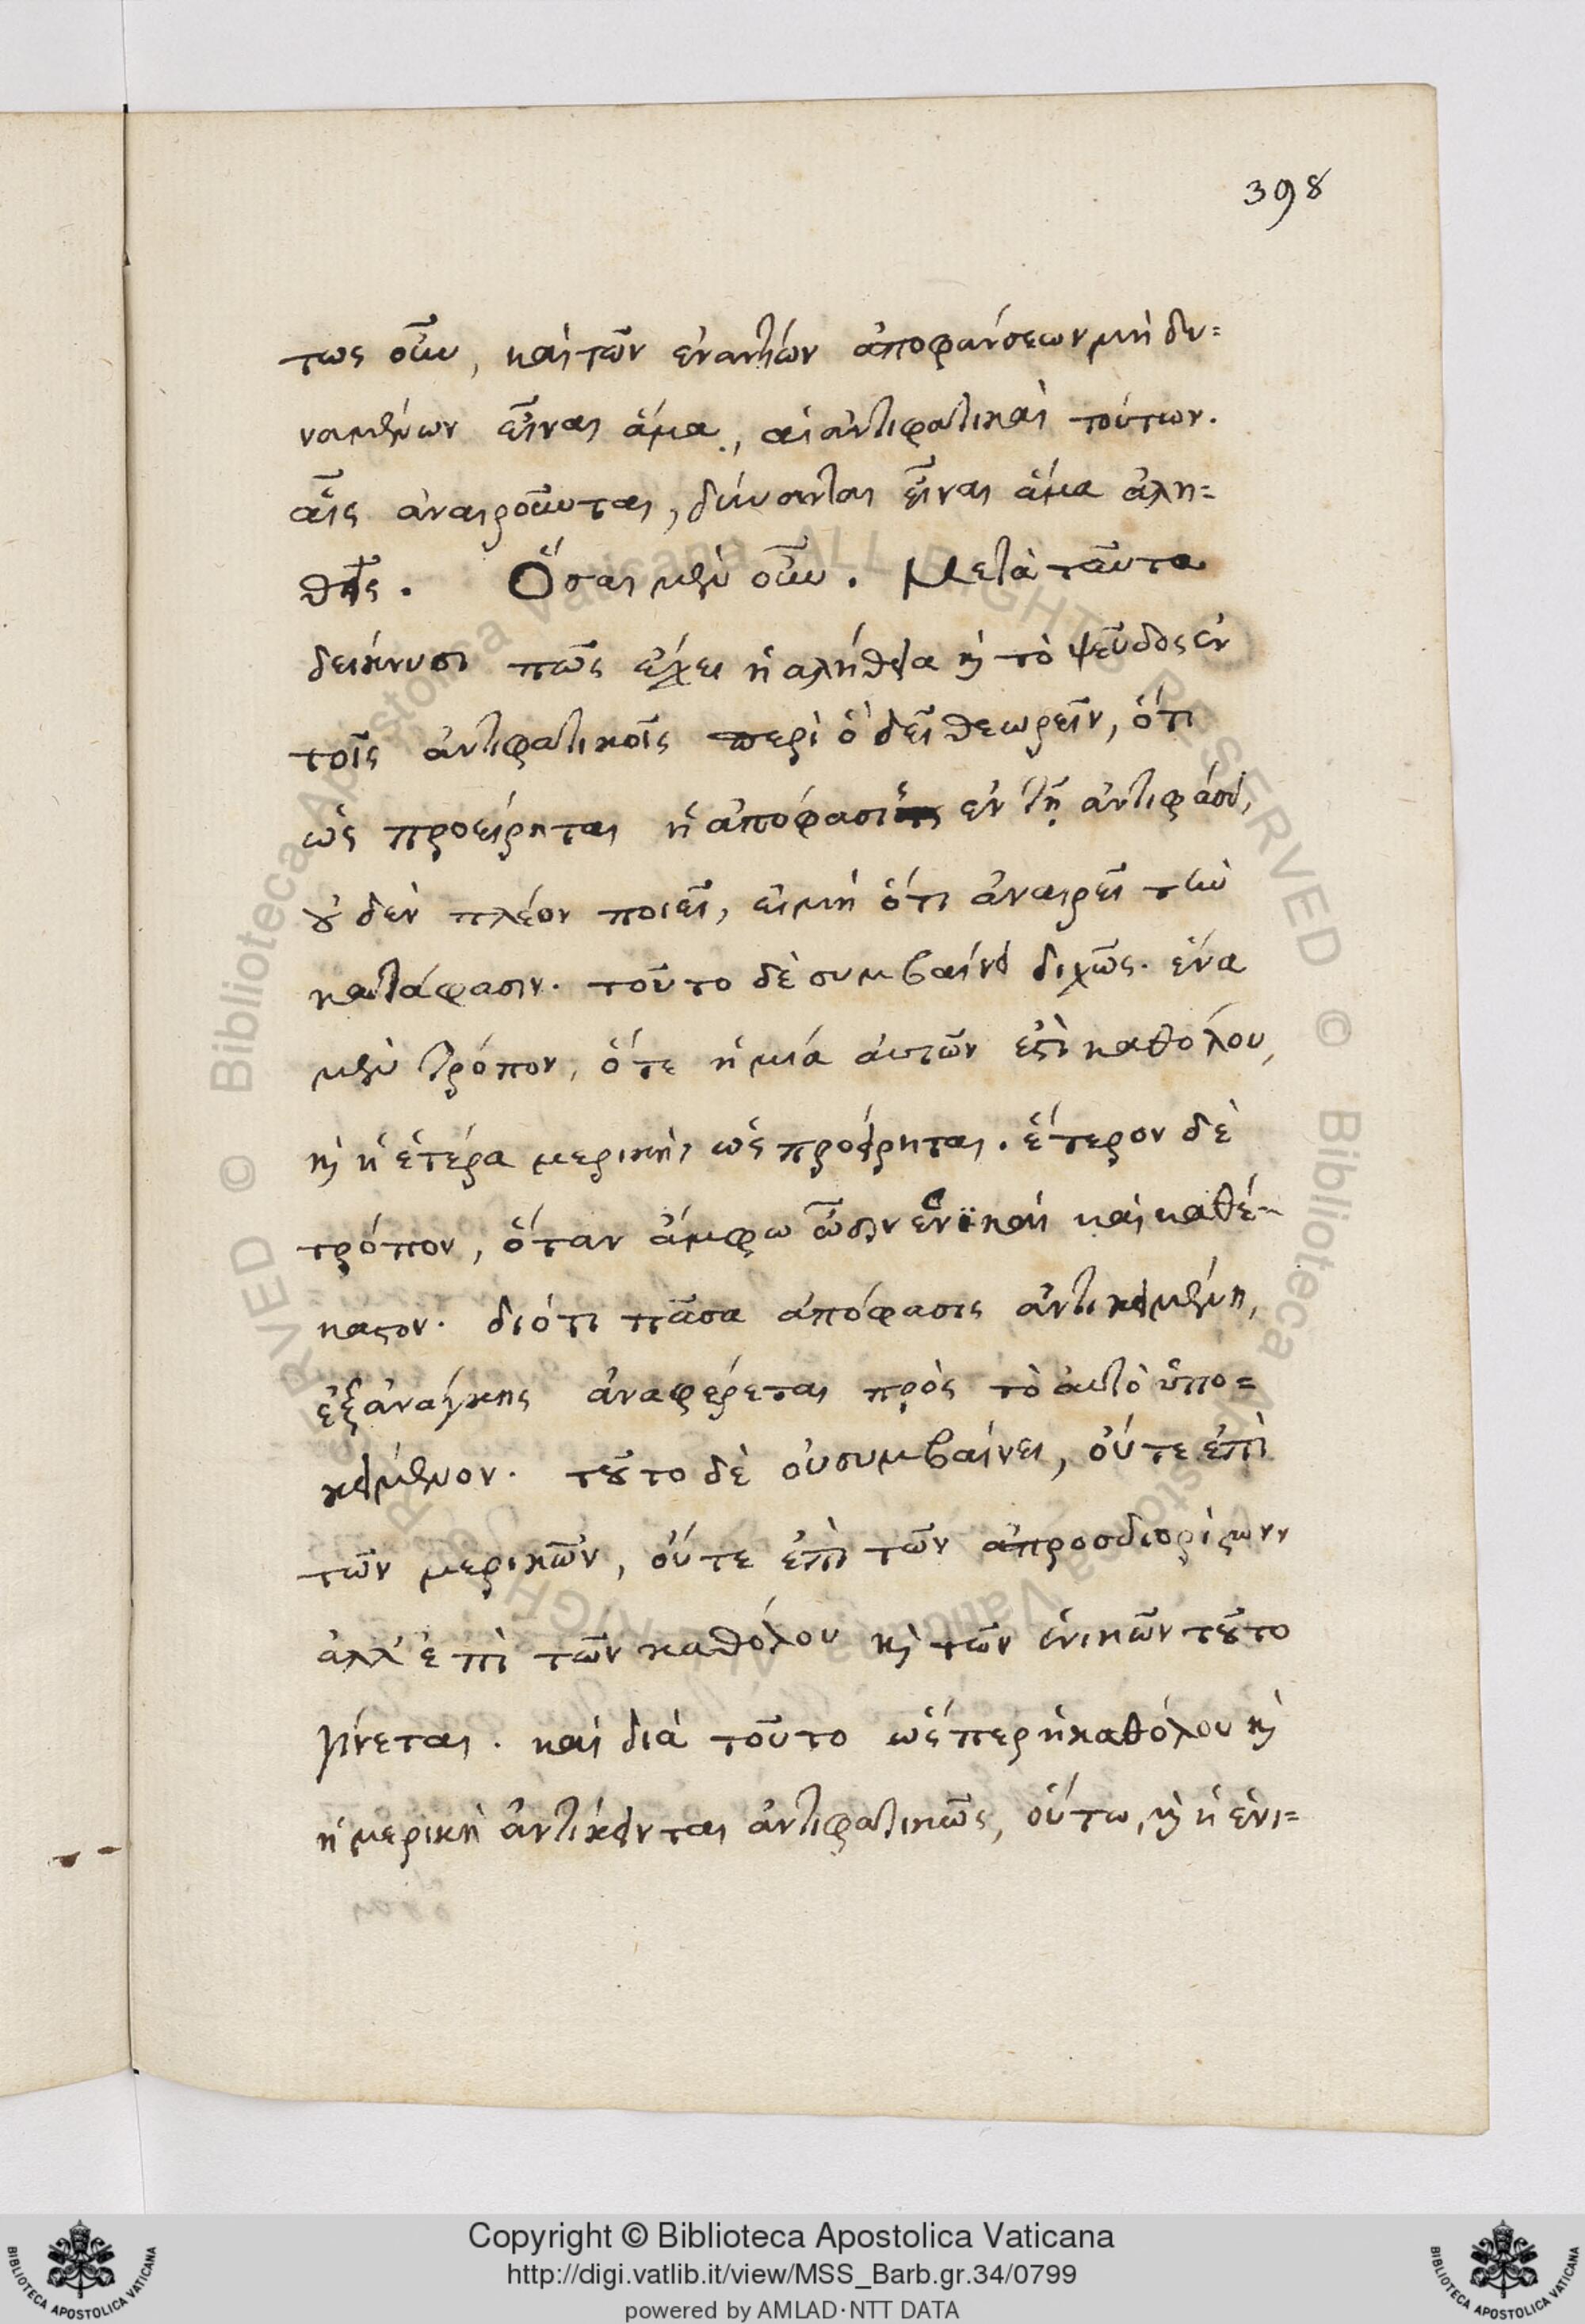 398
τως οὖν, καὶ τῶν ἐναντίων ἀποφάνσεων μὴ δυ=
ναμένων εἶναι ἅμα, αἱ ἀντιφατικαὶ τούτων.
αἷς ἀναιροῦνται, δύνανται εἶναι ἅμα ἀλη=
θεῖς. Ὅσαι μὲν οὖν. Μετὰ ταῦτα
δείκνυσι πῶς ἔχει ἡ αλήθεια κὶ τὸ ψεῦδος ἐν
τοῖς ἀντιφατικοῖς περὶ ὃ δεῖ θεωρεῖν, ὅτι
ὡς προείρηται ἡ ἀπόφασις ἐν τῇ ἀντιφάσει,
οὐδὲν πλέον ποιεῖ, εἰμὴ ὅτι ἀναιρεῖ τὴν
κατάφασιν. τοῦτο δὲ συμβαίνει διχῶς. ἕνα
μὲν τρόπον, ὅτε ἡ μία αὐτῶν ἐστὶ καθόλου,
κὶ ἡ ἑτέρα μερικὴ, ὡς προείρηται. ἕτερον δὲ
τρόπον, ὅταν ἄμφω ὦσιν ἑνϊκαὶ καὶ καθέ-
καστον. διότι πᾶσα ἀπόφασις ἀντικειμένη,
ἐξανάγκης ἀναφέρεται πρὸς τὸ αὐτὸ ὑπο=
κείμενον. τοῦτο δὲ οὐ συμβαίνει, οὔτε ἐπὶ
τῶν μερικῶν, οὔτε ἐπὶ τῶν απροσδιορίστων,
ἀλλ' ἐπὶ τῶν καθόλου κὶ τῶν ἑνικῶν τοῦτο
γίνεται. καὶ διὰ τοῦτο ὥςπερ ἡ καθόλου κὶ
ἡ μερικὴ ἀντίκεινται ἀντιφατικῶς, οὕτω, κὶ ἡ ἑνι=
Copyright © Biblioteca Apostolica Vaticana
http://digi.vatlib.it/view/MSS_Barb.gr.34/0799
powered by AMLAD·NTT DATA